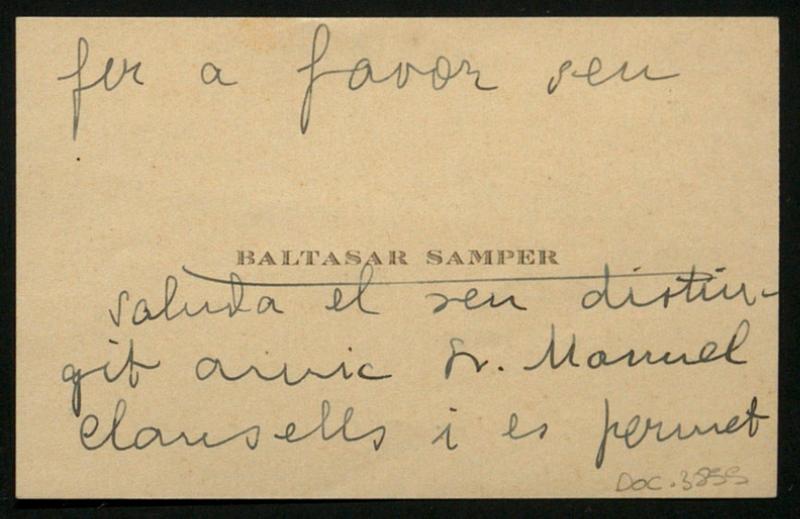 fer a favor seu
BALTASAR SAMPER
saluda el seu distin-
git amic Sr. Manuel
Clausells i es permet
DOC. 3855